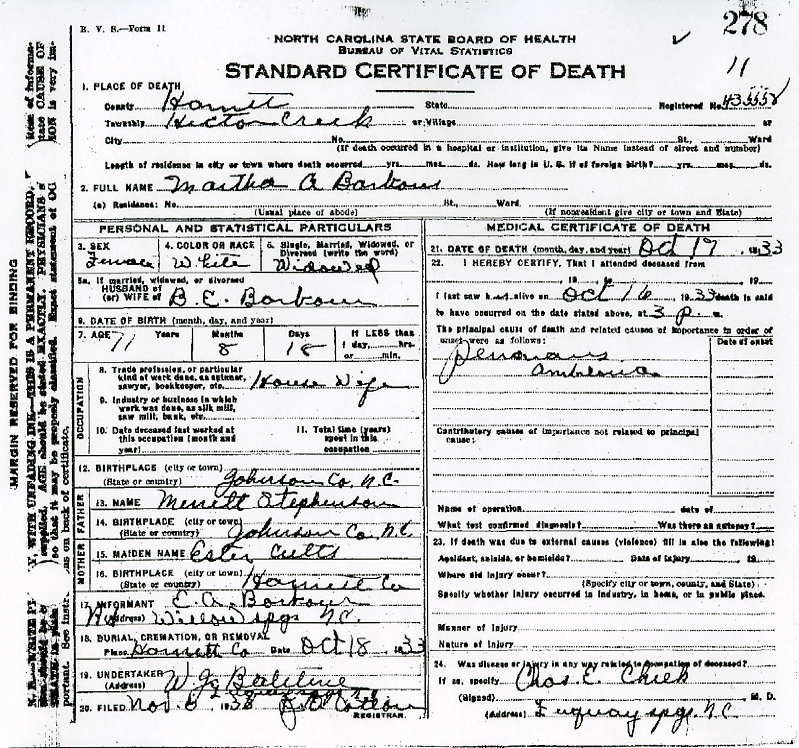 278
B. V. S.—Form 11
NORTH CAROLINA STATE BOARD OF HEALTH
BUREAU OF VITAL STATISTICS
STANDARD CERTIFICATE OF DEATH
11
1. PLACE OF DEATH
County Harnett State Registered No.
Township Hector Creek or Village or
City No. St., Ward
(If death occurred in a hospital or institution, give its Name instead of street and number)
Length of residence in city or town where death occurred yrs. mos. ds. How long in U. S. if of foreign birth? yrs. mos. ds.
2. FULL NAME Martha A Barbour
(a) Residence: No. St., Ward
(Usual place of abode) (If nonresident give city or town and State)
PERSONAL AND STATISTICAL PARTICULARS
3. SEX 4. COLOR OR RACE 5. Single, Married, Widowed, or
Divorced (write the word)
Female White Widowed
5a. If married, widowed, or divorced
HUSBAND of
(or) WIFE of B. E. Barbour
6. DATE OF BIRTH (month, day, and year)
7. AGE Years Months Days If LESS than
1 day, hrs.
or min.
71 8 18
OCCUPATION
8. Trade, profession, or particular
kind of work done, as spinner,
sawyer, bookkeeper, etc. House Wife
9. Industry or business in which
work was done, as silk mill,
saw mill, bank, etc.
10. Date deceased last worked at
this occupation (month and
year)
11. Total time (years)
spent in this
occupation
12. BIRTHPLACE (city or town)
(State or country) Johnson Co. N.C.
FATHER
13. NAME Merrett Stephenson
14. BIRTHPLACE (city or town)
(State or country) Johnson Co. N.C.
MOTHER
15. MAIDEN NAME Ester Cutts
16. BIRTHPLACE (city or town)
(State or country) Harnett Co
17. INFORMANT E. A. Barbour
(Address) Willow Spgs N.C.
18. BURIAL, CREMATION, OR REMOVAL
Place Harnett Co Date Oct 18 1933
19. UNDERTAKER W. J.
(Address)
20. FILED Nov. 6
REGISTRAR.
MEDICAL CERTIFICATE OF DEATH
21. DATE OF DEATH (month, day, and year) Oct 17 1933
22. I HEREBY CERTIFY, That I attended deceased from
19 to 19
I last saw h alive on Oct 16 1933 death is said
to have occurred on the date stated above, at 3 p. m.
The principal cause of death and related causes of importance in order of
onset were as follows: Date of onset
Contributory causes of importance not related to principal
cause:
Name of operation date of
What test confirmed diagnosis? Was there an autopsy?
23. If death was due to external causes (violence) fill in also the following:
Accident, suicide, or homicide? Date of injury 19
Where did injury occur?
(Specify city or town, county, and State)
Specify whether injury occurred in industry, in home, or in public place.
Manner of Injury
Nature of Injury
24. Was disease or injury in any way related to occupation of deceased?
If so, specify
(Signed) Chas. E. Cheek M. D.
(Address) Fuquay spgs N.C.
MARGIN RESERVED FOR BINDING